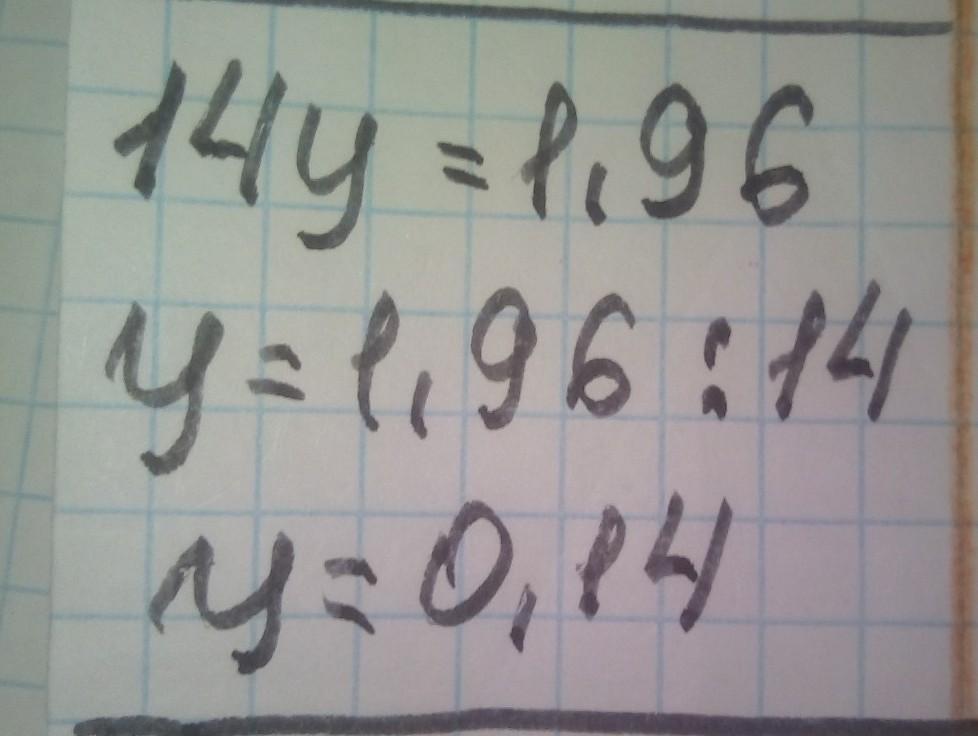 14y = 1,96
y = 1,96 : 14
y = 0,14